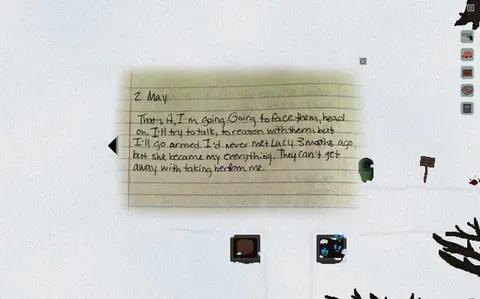 2 May
That's it, I'm going. Going to face them, head
on. I'll try to talk, to reason with them, but
I'll go armed. I'd never met Lucy 3 months ago,
but she became my everything. They can't get
away with taking her from me.